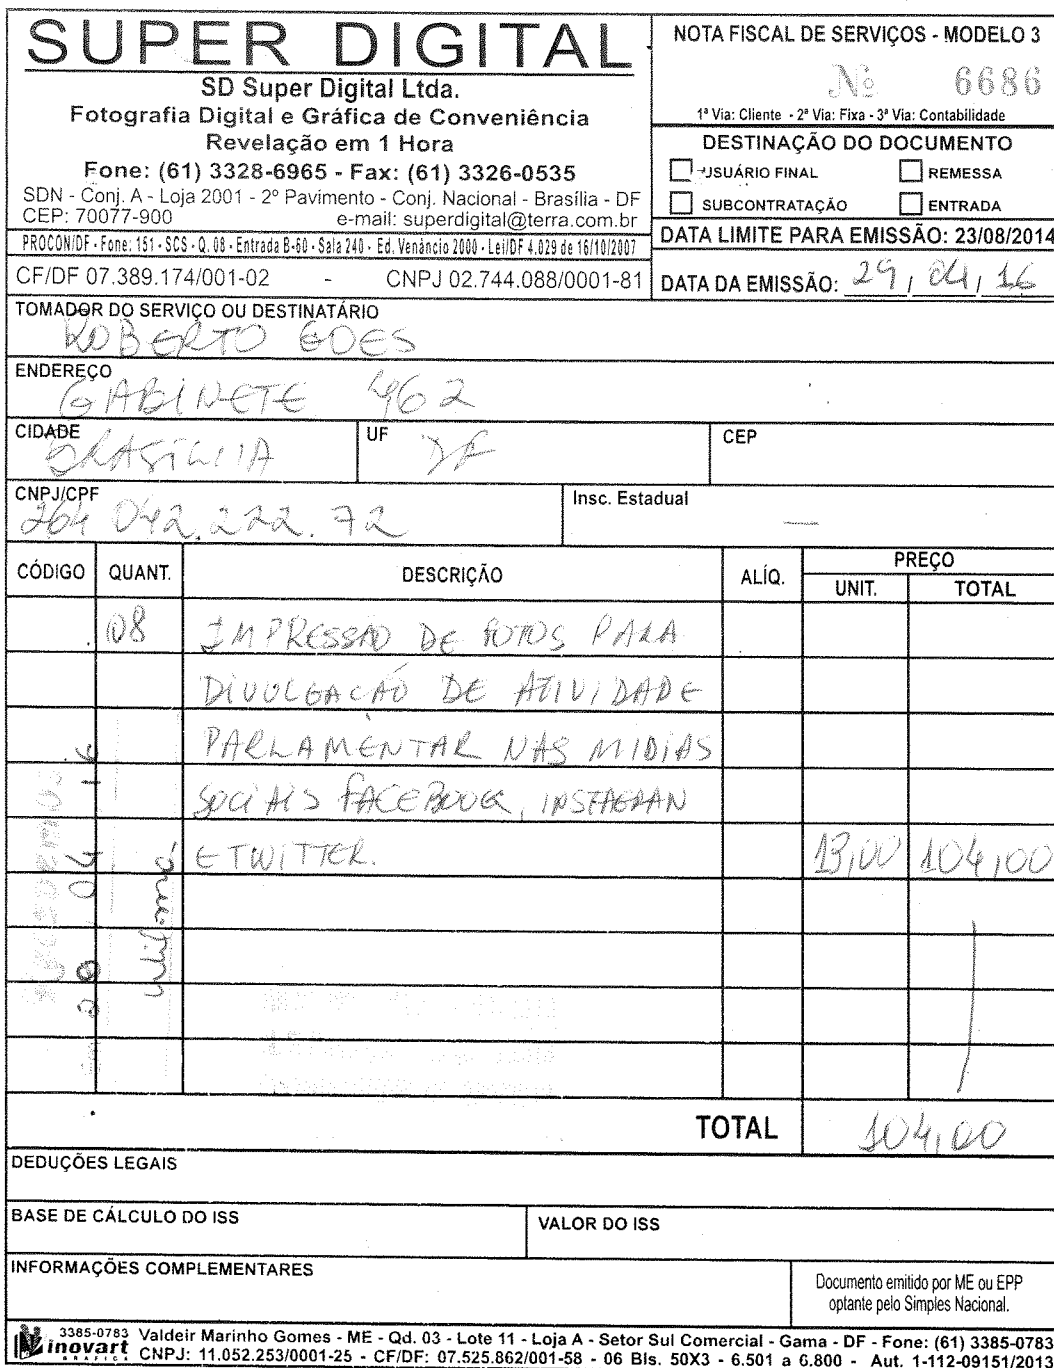 SUPER DIGITAL
SD Super Digital Ltda.
Fotografia Digital e Gráfica de Conveniência
Revelação em 1 Hora
Fone: (61) 3328-6965 - Fax: (61) 3326-0535
SDN - Conj. A - Loja 2001 - 2º Pavimento - Conj. Nacional - Brasília - DF
CEP: 70077-900 e-mail: superdigital@terra.com.br
PROCON/DF - Fone: 151 - SCS - Q. 08 - Entrada B-60 - Sala 240 - Ed. Venâncio 2000 - Lei/DF 4.029 de 16/10/2007
CF/DF 07.389.174/001-02 - CNPJ 02.744.088/0001-81
NOTA FISCAL DE SERVIÇOS - MODELO 3
Nº 6686
1ª Via: Cliente - 2ª Via: Fixa - 3ª Via: Contabilidade
DESTINAÇÃO DO DOCUMENTO
USUÁRIO FINAL REMESSA
SUBCONTRATAÇÃO ENTRADA
DATA LIMITE PARA EMISSÃO: 23/08/2014
DATA DA EMISSÃO: 29 / 04 / 16
TOMADOR DO SERVIÇO OU DESTINATÁRIO
ROBERTO GOES
ENDEREÇO
GABINETE 462
CIDADE UF CEP
BRASÍLIA DF
CNPJ/CPF Insc. Estadual
264 042.222.72 —
CÓDIGO QUANT. DESCRIÇÃO ALÍQ. PREÇO
UNIT. TOTAL
08 IMPRESSÃO DE FOTOS PARA
DIVULGAÇÃO DE ATIVIDADE
PARLAMENTAR NAS MIDIAS
SOCIAIS FACEBOOK, INSTAGRAN
E TWITTER. 13,00 104,00
TOTAL 104,00
DEDUÇÕES LEGAIS
BASE DE CÁLCULO DO ISS VALOR DO ISS
INFORMAÇÕES COMPLEMENTARES
Documento emitido por ME ou EPP
optante pelo Simples Nacional.
inovart GRÁFICA
3385-0783 Valdeir Marinho Gomes - ME - Qd. 03 - Lote 11 - Loja A - Setor Sul Comercial - Gama - DF - Fone: (61) 3385-0783
CNPJ: 11.052.253/0001-25 - CF/DF: 07.525.862/001-58 - 06 Bls. 50X3 - 6.501 a 6.800 - Aut. 1-112-09151/2012